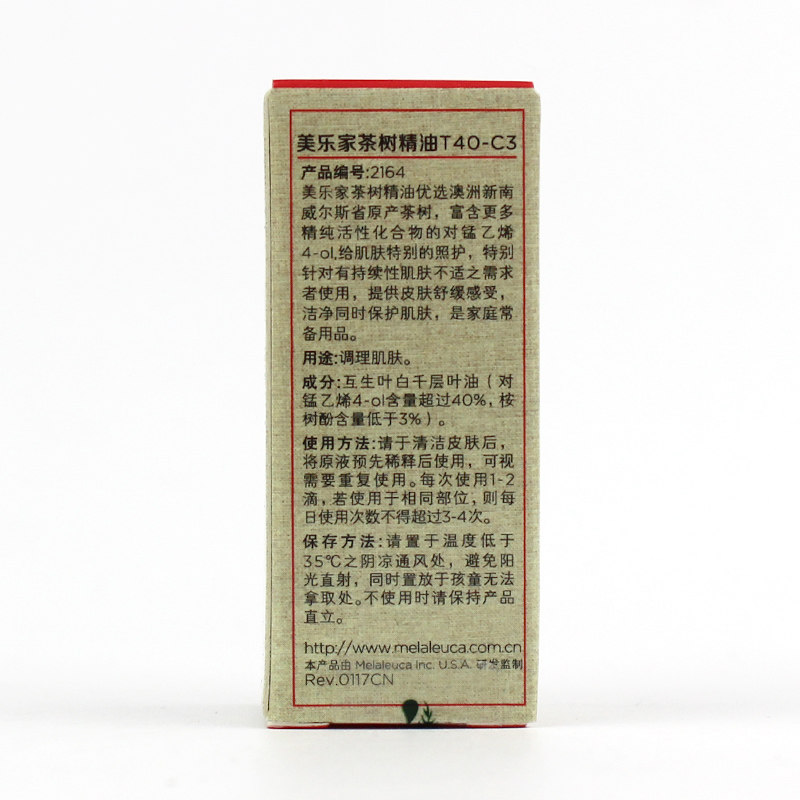 美乐家茶树精油T40-C3
产品编号:2164
美乐家茶树精油优选澳洲新南
威尔斯省原产茶树，富含更多
精纯活性化合物的对锰乙烯
4-ol,给肌肤特别的照护，特别
针对有持续性肌肤不适之需求
者使用，提供皮肤舒缓感受，
洁净同时保护肌肤，是家庭常
备用品。
用途:调理肌肤。
成分:互生叶白千层叶油（对
锰乙烯4-ol含量超过40%，桉
树酚含量低于3%）。
使用方法:请于清洁皮肤后，
将原液预先稀释后使用，可视
需要重复使用。每次使用1-2
滴，若使用于相同部位，则每
日使用次数不得超过3-4次。
保存方法:请置于温度低于
35℃之阴凉通风处，避免阳
光直射，同时置放于孩童无法
拿取处。不使用时请保持产品
直立。
http://www.melaleuca.com.cn
本产品由 Melaleuca Inc. U.S.A. 研发监制
Rev.0117CN